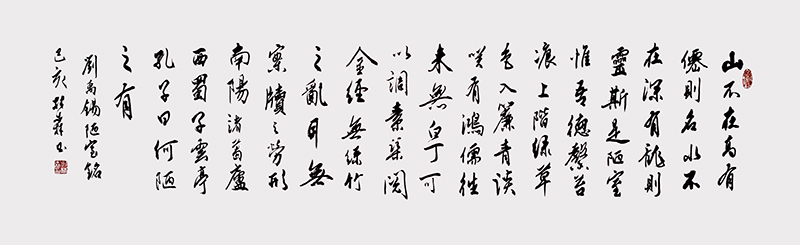 山不在高有
僊則名水不
在深有龍則
靈斯是陋室
惟吾德馨苔
痕上階綠草
色入簾青談
咲有鴻儒往
来無白丁可
以調素琴閱
金經無絲竹
之亂耳無
案牘之勞形
南陽諸葛廬
西蜀子雲亭
孔子曰何陋
之有
劉禹錫陋室銘
己亥書